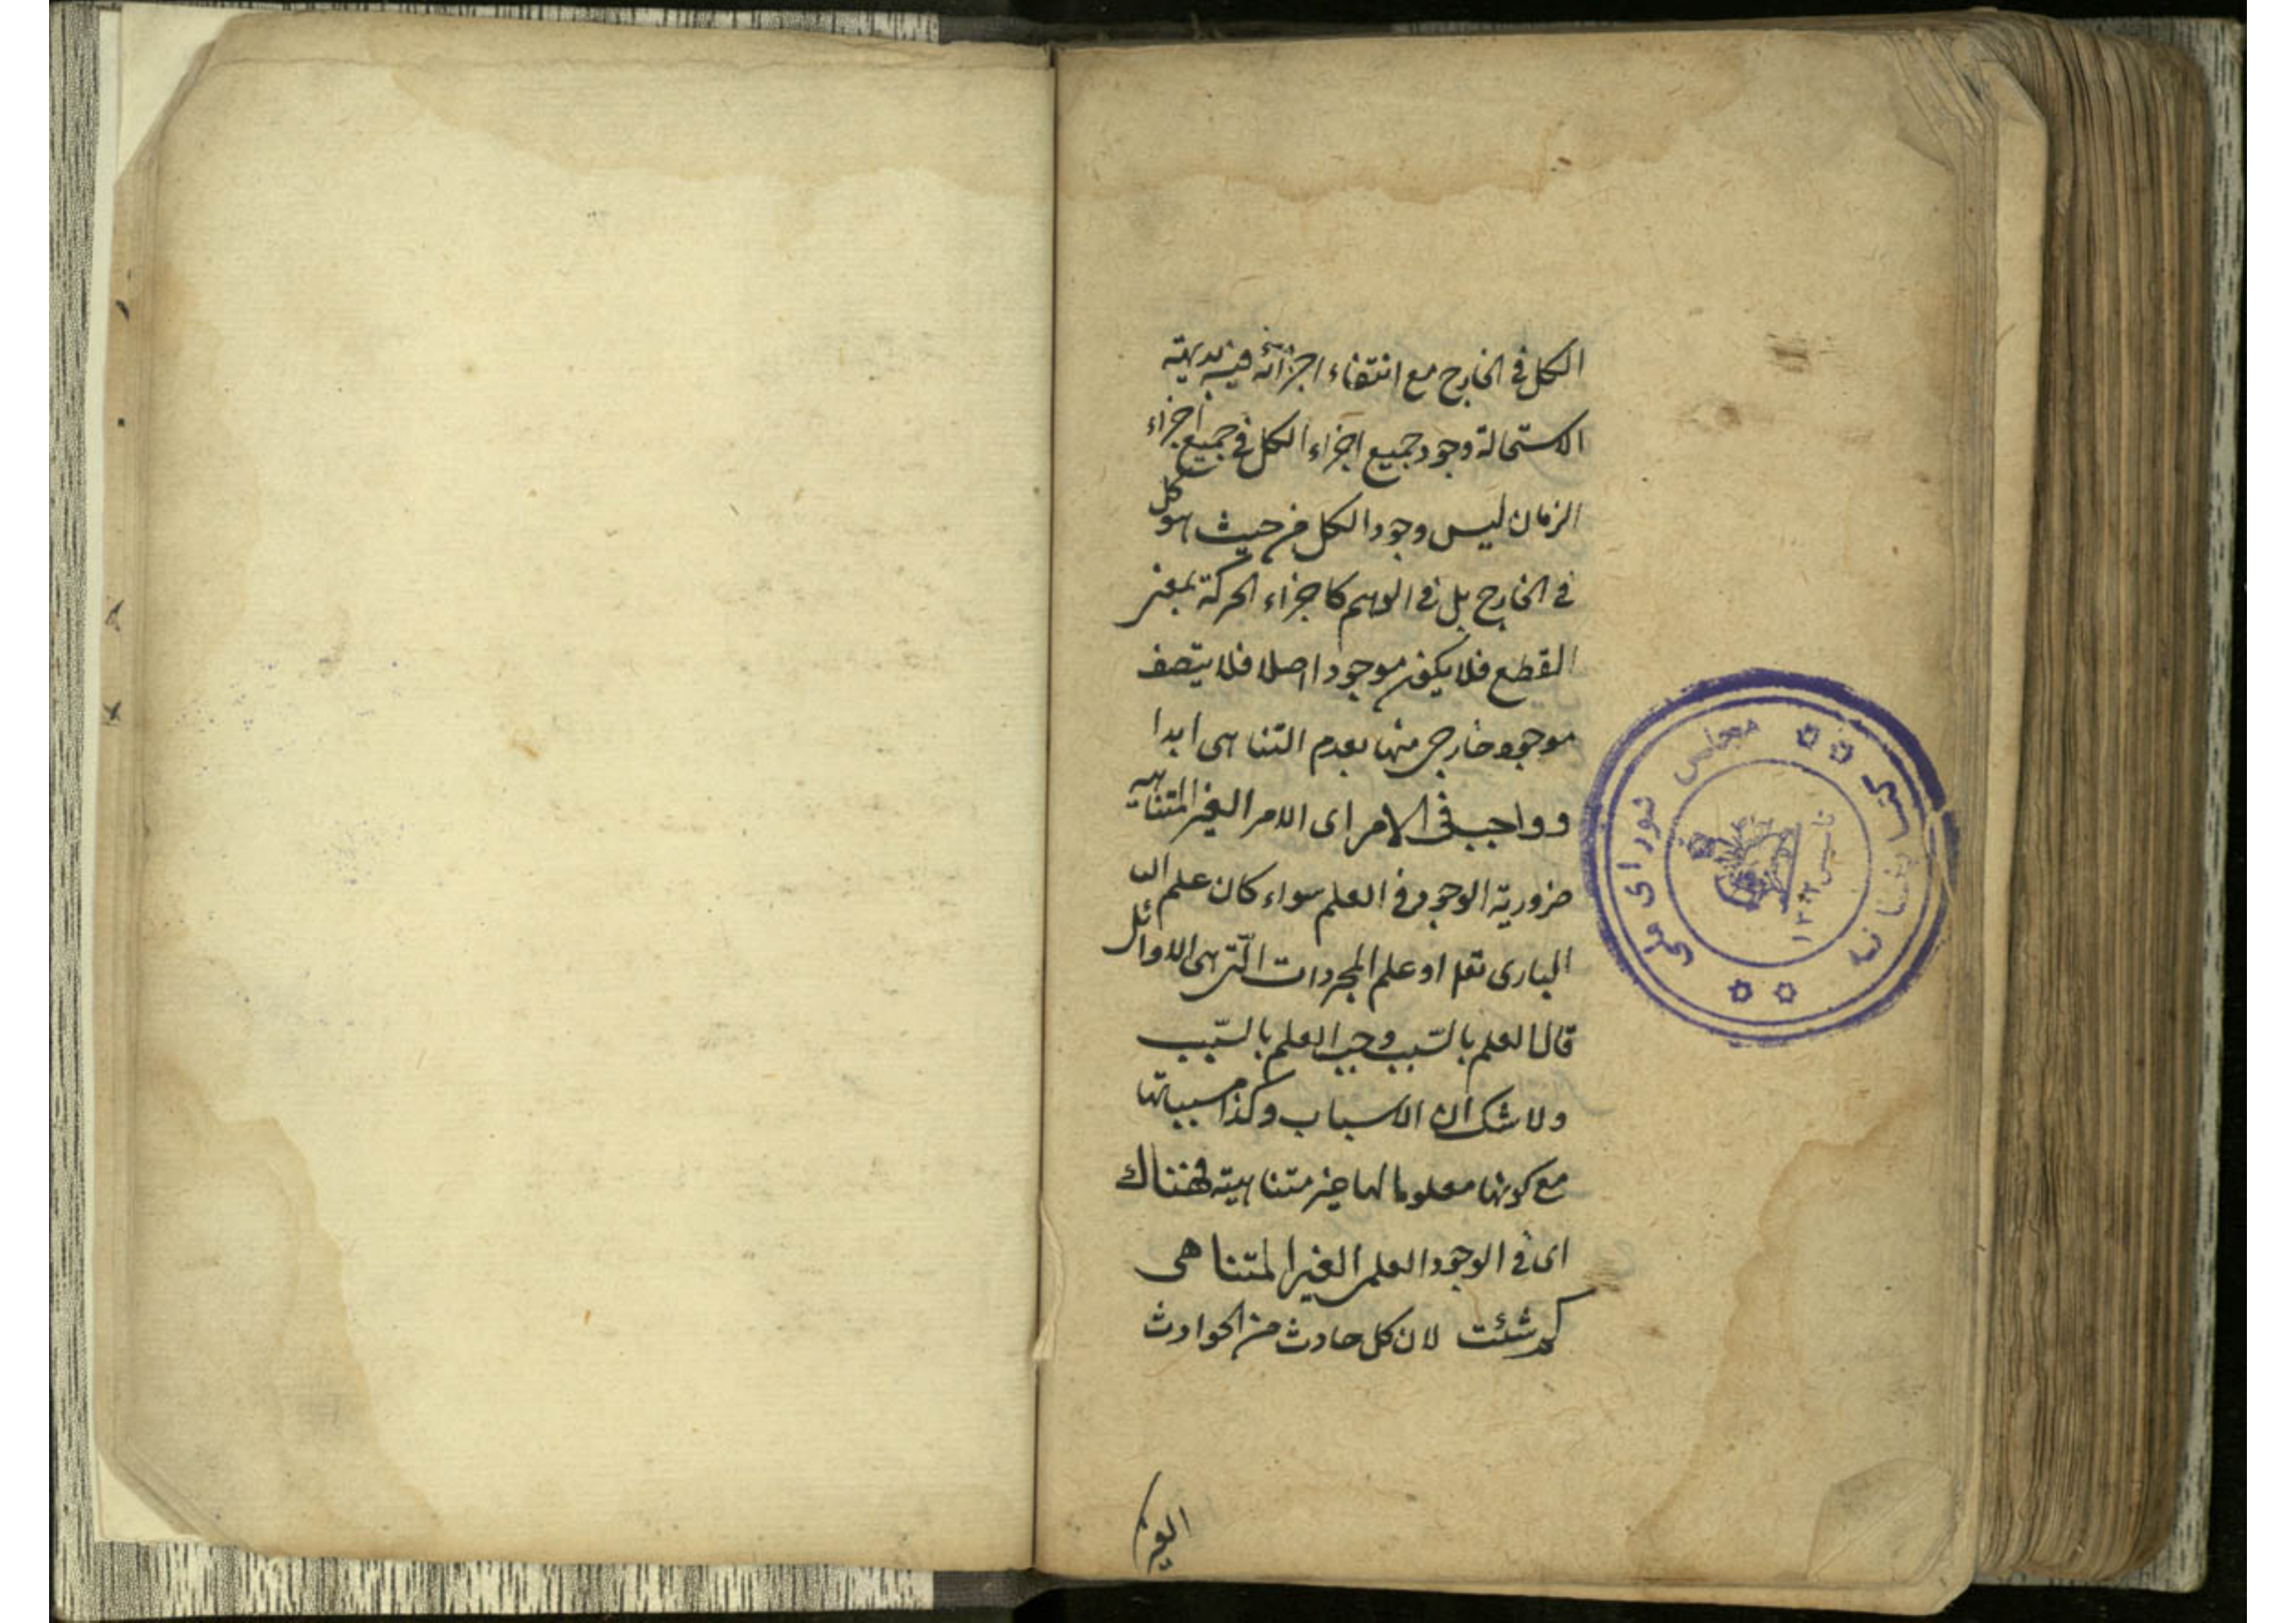 الكل في الخارج مع انتفاء اجزائه فيه بديهية
الاستحالة وجود جميع اجزاء الكل في جميع اجزاء
الزمان ليس وجود الكل من حيث هو كل
في الخارج بل في الوهم كاجزاء الحركة بمعنى
القطع فلا يكون موجودا اصلا فلا يتصف
موجود خارجي منها بعدم التناهي ابدا
وواجب في الامر اى الامر الغير المتناهية
ضرورية الوجود في العلم سواء كان علم
البارى تعا او علم المجردات التي هى الاوائل
قالا العلم بالسبب وجب العلم بالسبب
ولا شك ان الاسباب وكذا مسبباتها
مع كونها معلوما لها غير متناهية فهناك
اى في الوجود العلمى الغير المتناهى
كم شئت لان كل حادث من الحوادث
مجلس شوراى ملى
كتابخانه
تاسيس ١٣٠٢